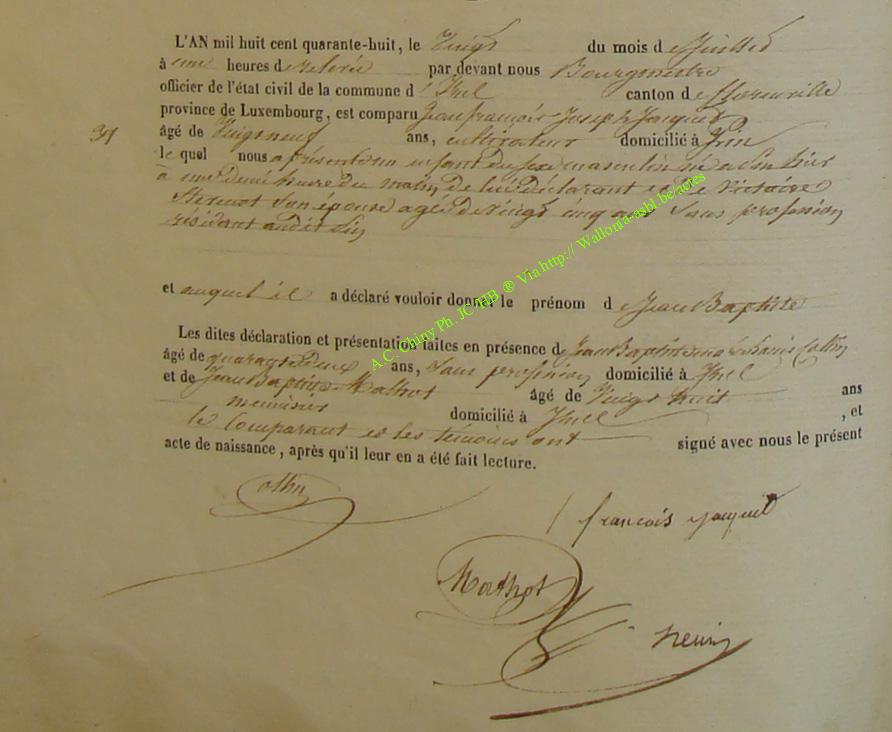 L'AN mil huit cent quarante-huit, le Vingt du mois de Juillet
à une heures de relevée par devant nous Bourgmestre
officier de l'état civil de la commune d'Izel canton de florenville
province de Luxembourg, est comparu Jean françois Joseph Jacquet
31 âgé de Vingt neuf ans, cultivateur domicilié à
le quel nous a présenté un enfant du sexe masculin né hier
à une demi heure du matin, de lui déclarant et de Victoire
son épouse agée de Vingt cinq ans Sans profession
résidant audit
et auquel il a déclaré vouloir donner le prénom de Jean Baptiste
Les dites déclaration et présentation faites en présence de Jean Baptiste Collin
âgé de quarante deux ans, Sans profession domicilié à Izel
et de Jean Baptiste Mathot âgé de Vingt huit ans
menuisier domicilié à Izel , et
le Comparant et les témoins ont signé avec nous le présent
acte de naissance, après qu'il leur en a été fait lecture.
Collin
francois Jacquet
Mathot
A.C. Chiny Ph. JC MB ® Via http:// Wallonia-asbl.be/actes